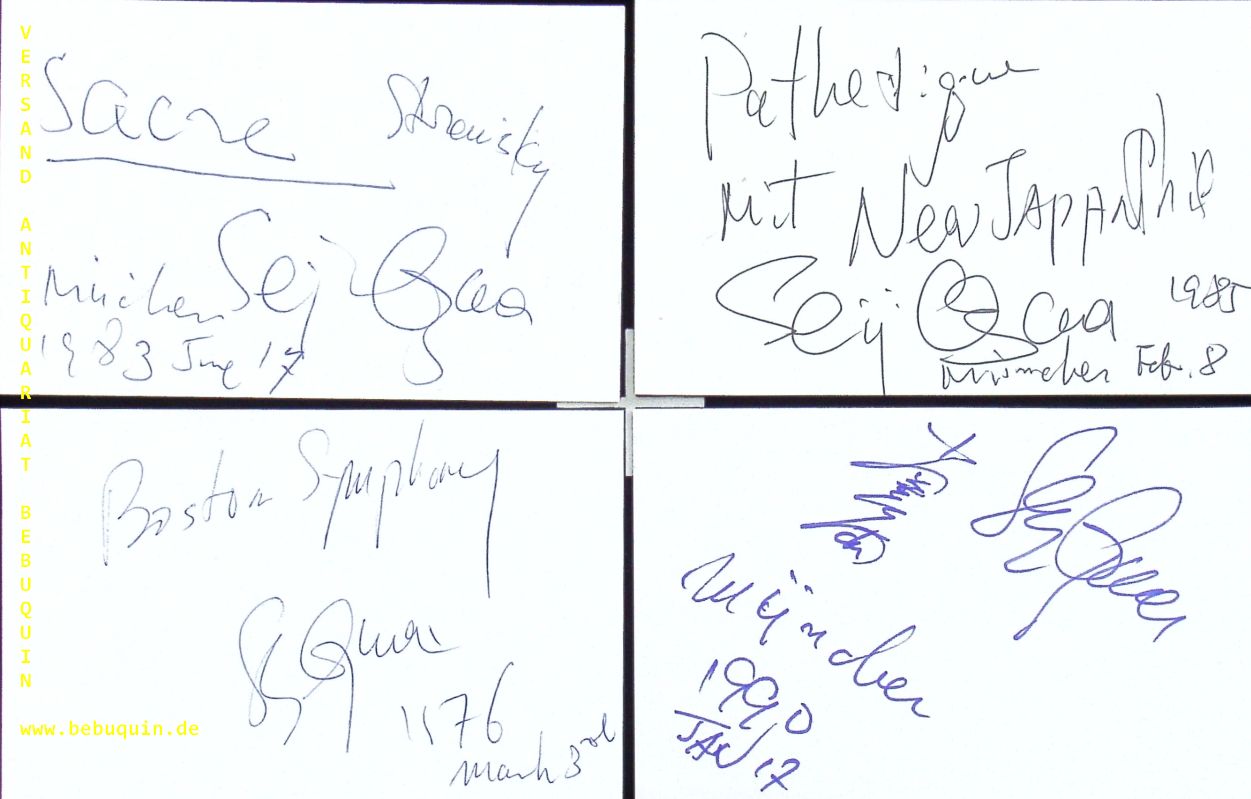 VERSAND ANTIQUARIAT BEBUQUIN
www.bebuquin.de
Sacre Stravinsky
München Seiji Ozawa
1983 June 17
Pathetique
mit New Japan Phil
Seiji Ozawa 1985
München Feb. 8
Boston Symphony
Seiji Ozawa
1976
March 3rd
Seiji Ozawa
München
1990
JAN 17